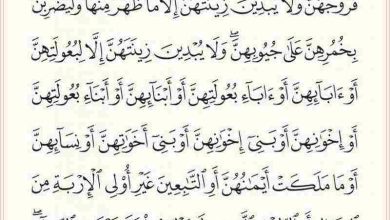 فُرُوجَهُنَّ وَلَا يُبْدِينَ زِينَتَهُنَّ إِلَّا مَا ظَهَرَ مِنْهَا وَلْيَضْرِبْنَ
بِخُمُرِهِنَّ عَلَىٰ جُيُوبِهِنَّ ۖ وَلَا يُبْدِينَ زِينَتَهُنَّ إِلَّا لِبُعُولَتِهِنَّ
أَوْ ءَابَآئِهِنَّ أَوْ ءَابَآءِ بُعُولَتِهِنَّ أَوْ أَبْنَآئِهِنَّ أَوْ أَبْنَآءِ بُعُولَتِهِنَّ
أَوْ إِخْوَٰنِهِنَّ أَوْ بَنِىٓ إِخْوَٰنِهِنَّ أَوْ بَنِىٓ أَخَوَٰتِهِنَّ أَوْ نِسَآئِهِنَّ
أَوْ مَا مَلَكَتْ أَيْمَٰنُهُنَّ أَوِ ٱلتَّٰبِعِينَ غَيْرِ أُو۟لِى ٱلْإِرْبَةِ مِنَ